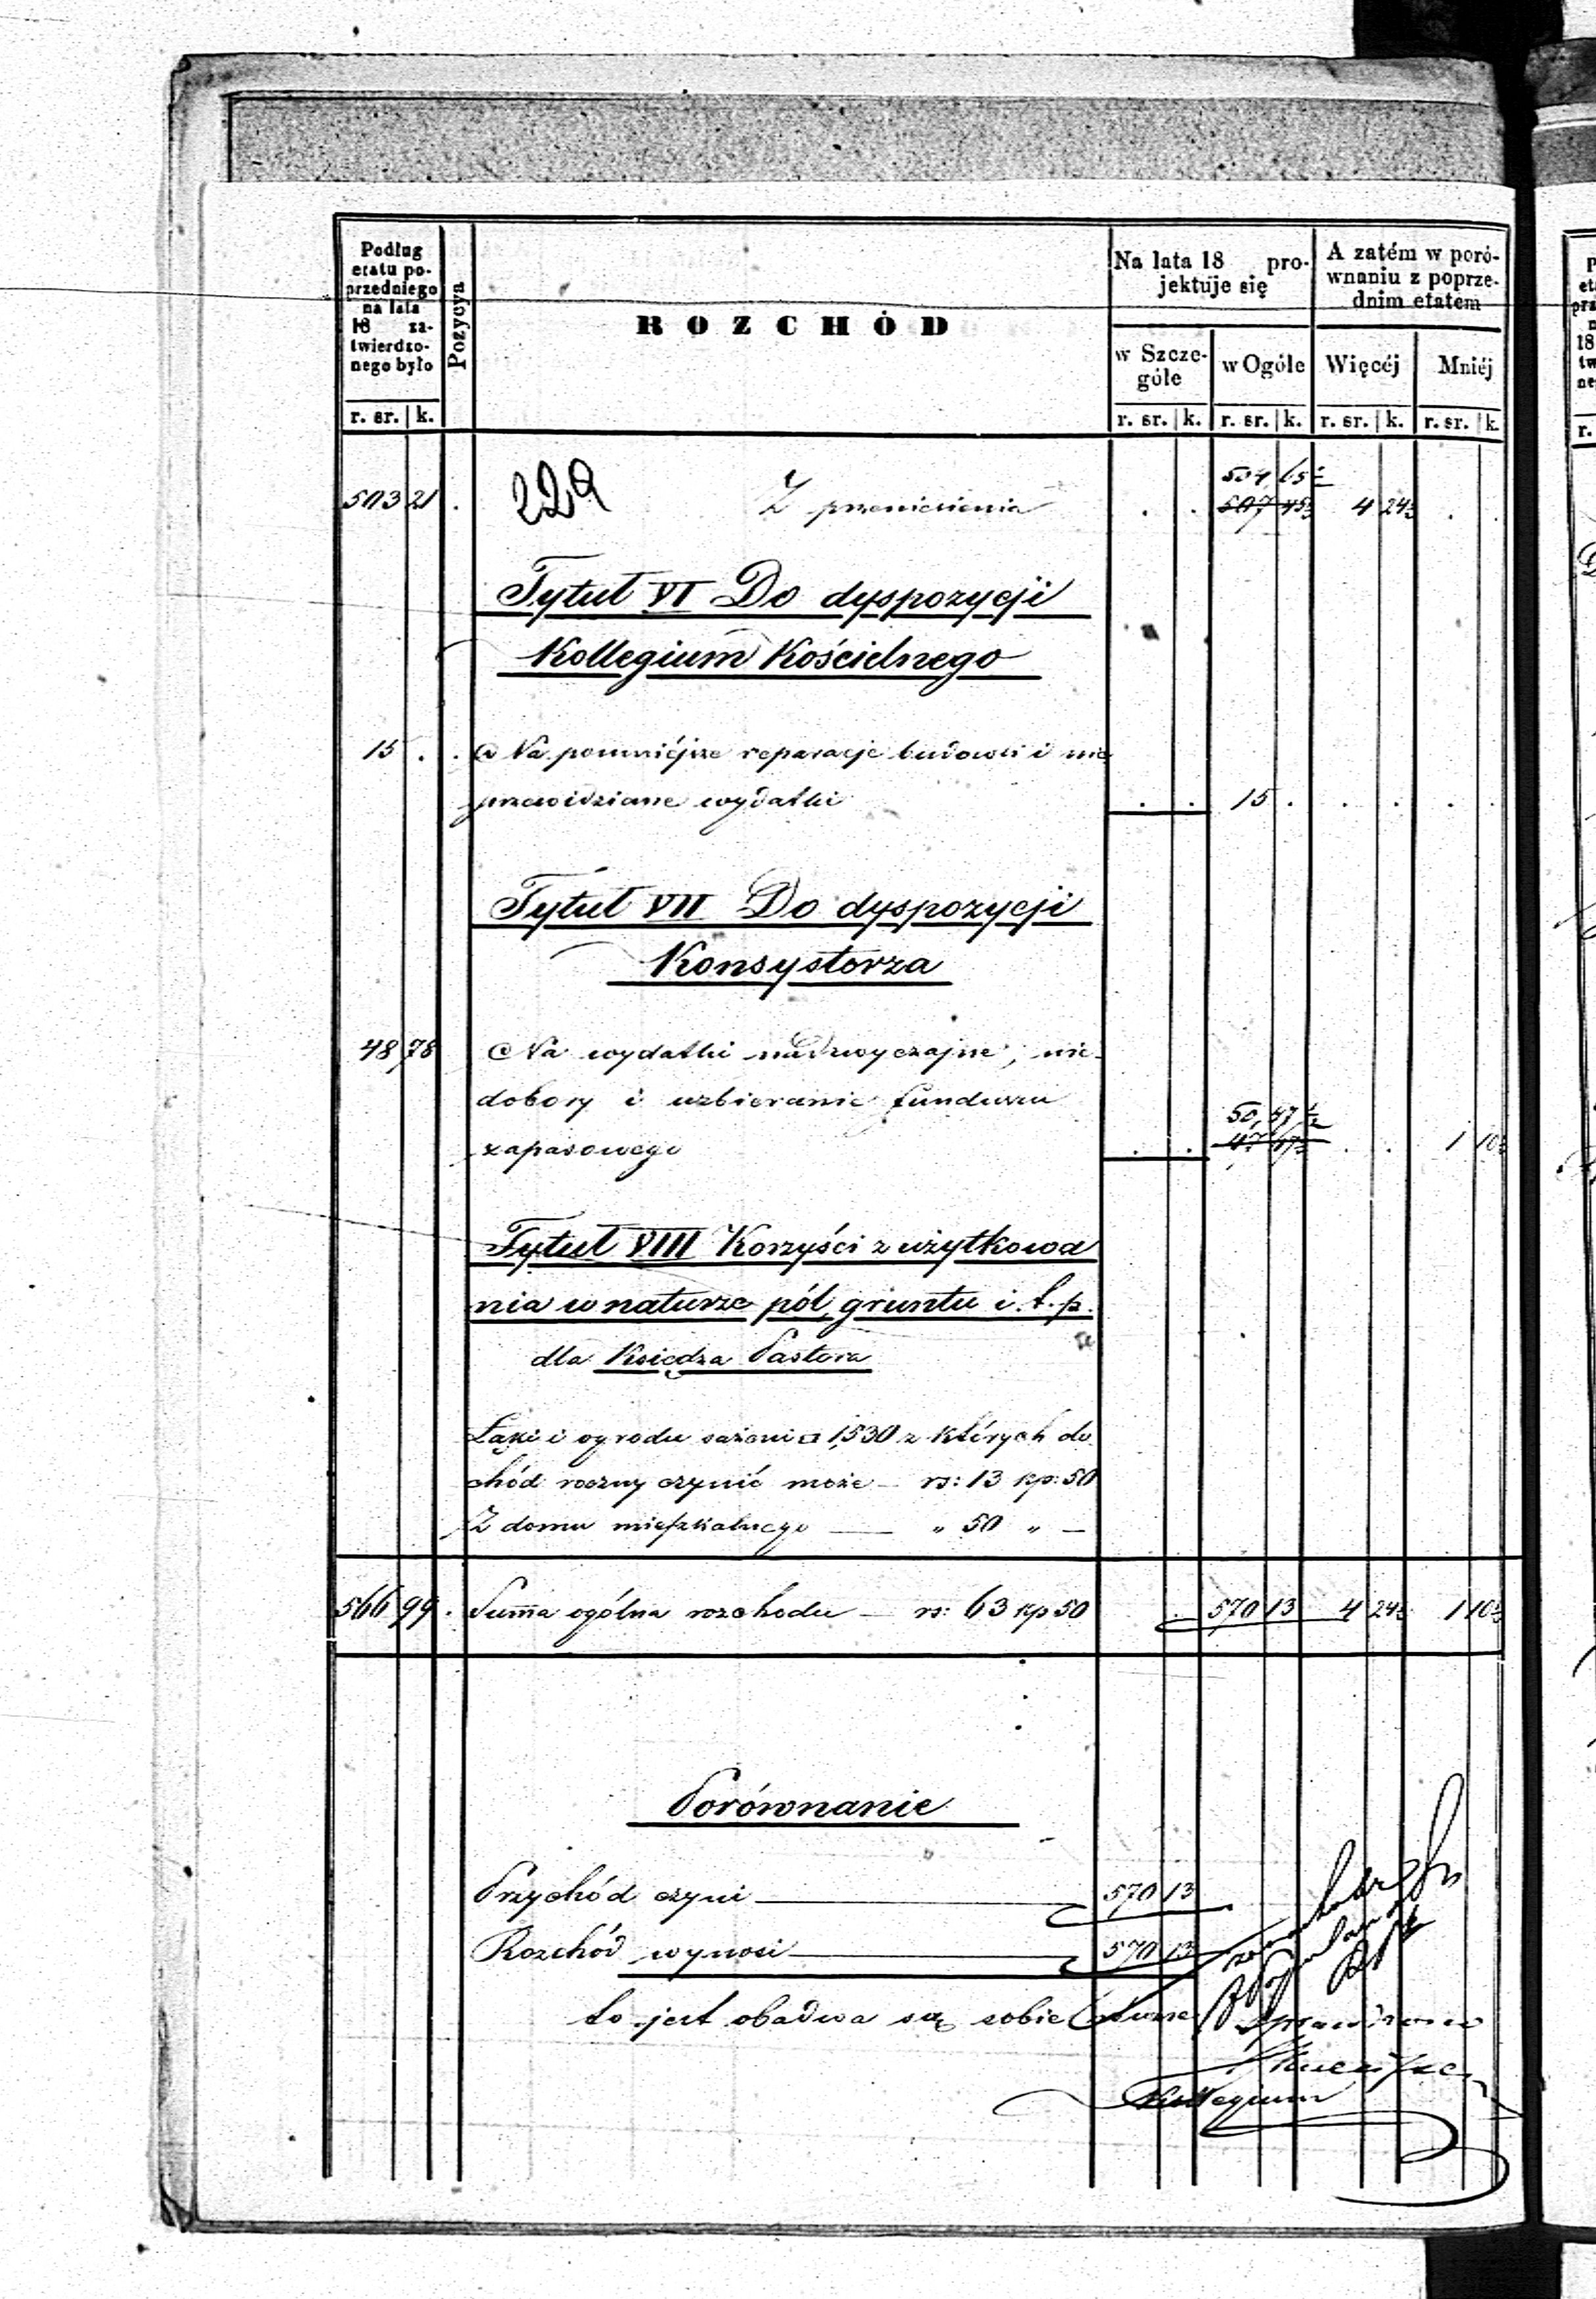 Podług
etatu po-
przedniego
na lata
18 za-
twierdzo-
nego było
r. sr. k.
Pozycya
ROZCHÓD
Na lata 18 pro-
jektuje się
w Szcze-
góle
w Ogóle
r. sr. k. r. sr. k.
A zatém w poró-
wnaniu z poprze-
dnim etatem
Więcéj Mniéj
r. sr. k. r. sr. k.
504 65½
503 21 . 229 Z przeniesienia . . 507 45½ 4 24½ . .
Tytuł VI Do dyspozycji
Kollegium Kościelnego
15 . . Na pomniéjsze reparacje budowli i nie
przewidziane wydatki . . 15 . . . . .
Tytuł VII Do dyspozycji
Konsystorza
48 78 Na wydatki nadzwyczajne, nie-
dobory i uzbieranie funduszu
50 47½
zapasowego . . 47 67½ . . 1 10½
Tytuł VIII Korzyści z użytkowa
nia w naturze pól, gruntu i.t.p.
dla Księdza Pastora
Łąki i ogrodu sażeni □ 1530 z których do
chód roczny czynić może – rs: 13 kp: 50
Z domu mieszkalnego — " 50 " –
566 99 . Summa ogólna rozchodu – rs: 63 kp 50 . 570 13 4 24½ 1 10½
Porównanie
Przychód czyni 570 13
Rozchód wynosi 570 13
to jest obadwa są sobie równe
Kollegium